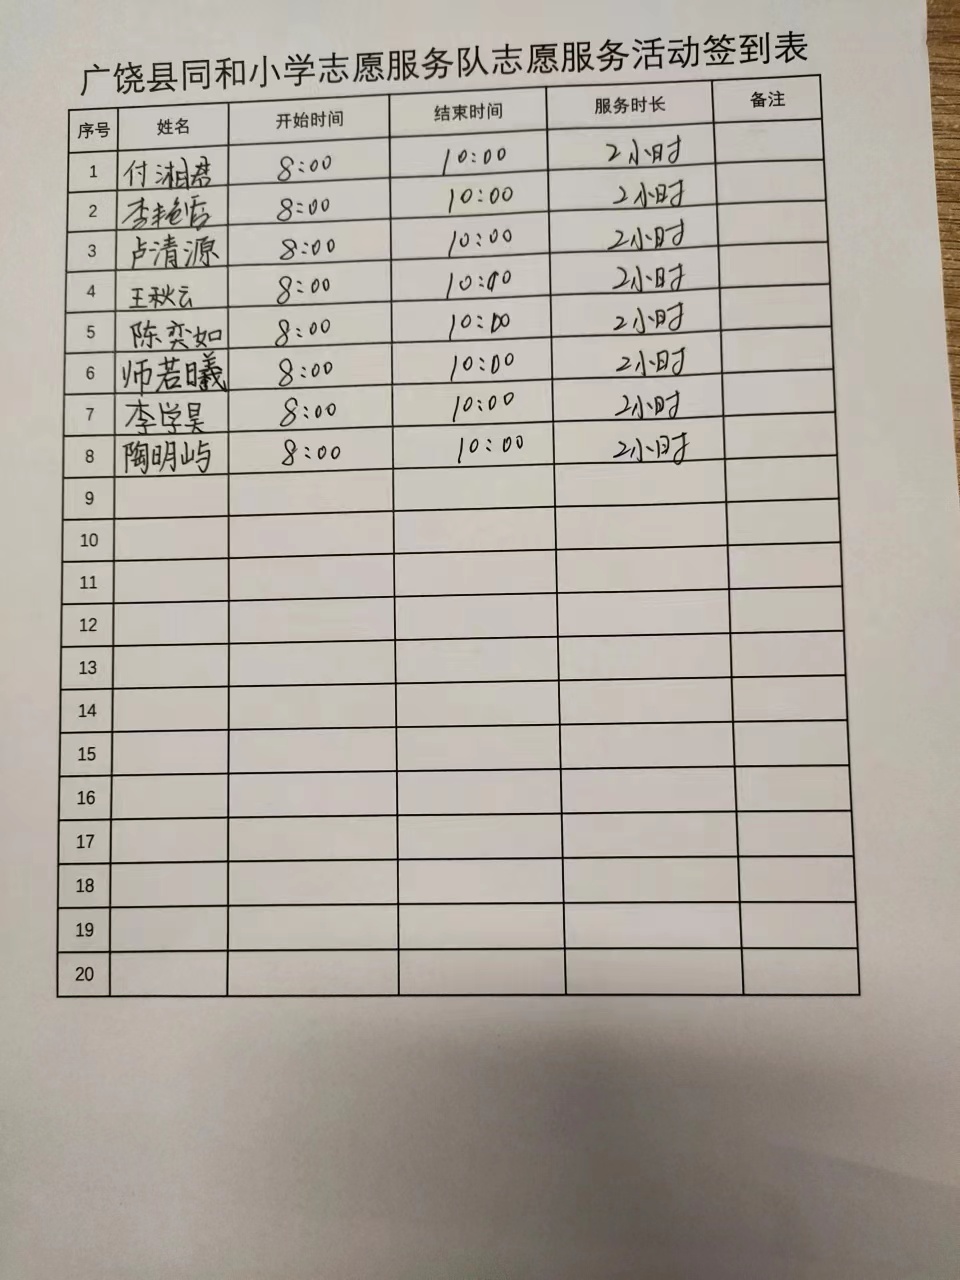 广饶县同和小学志愿服务队志愿服务活动签到表
序号 姓名 开始时间 结束时间 服务时长 备注
1 付湘君 8:00 10:00 2小时
2 李艳霞 8:00 10:00 2小时
3 卢清源 8:00 10:00 2小时
4 王秋云 8:00 10:00 2小时
5 陈奕如 8:00 10:00 2小时
6 师若曦 8:00 10:00 2小时
7 李学昊 8:00 10:00 2小时
8 陶明屿 8:00 10:00 2小时
9
10
11
12
13
14
15
16
17
18
19
20